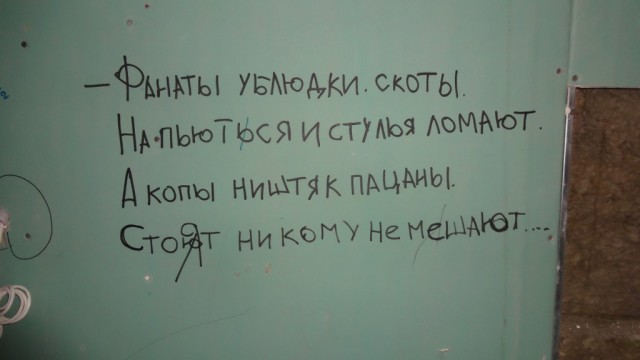 — Фанаты ублюдки. скоты.
На.пьються и стулья ломают.
А копы ништяк пацаны.
Стоят никому не мешают....